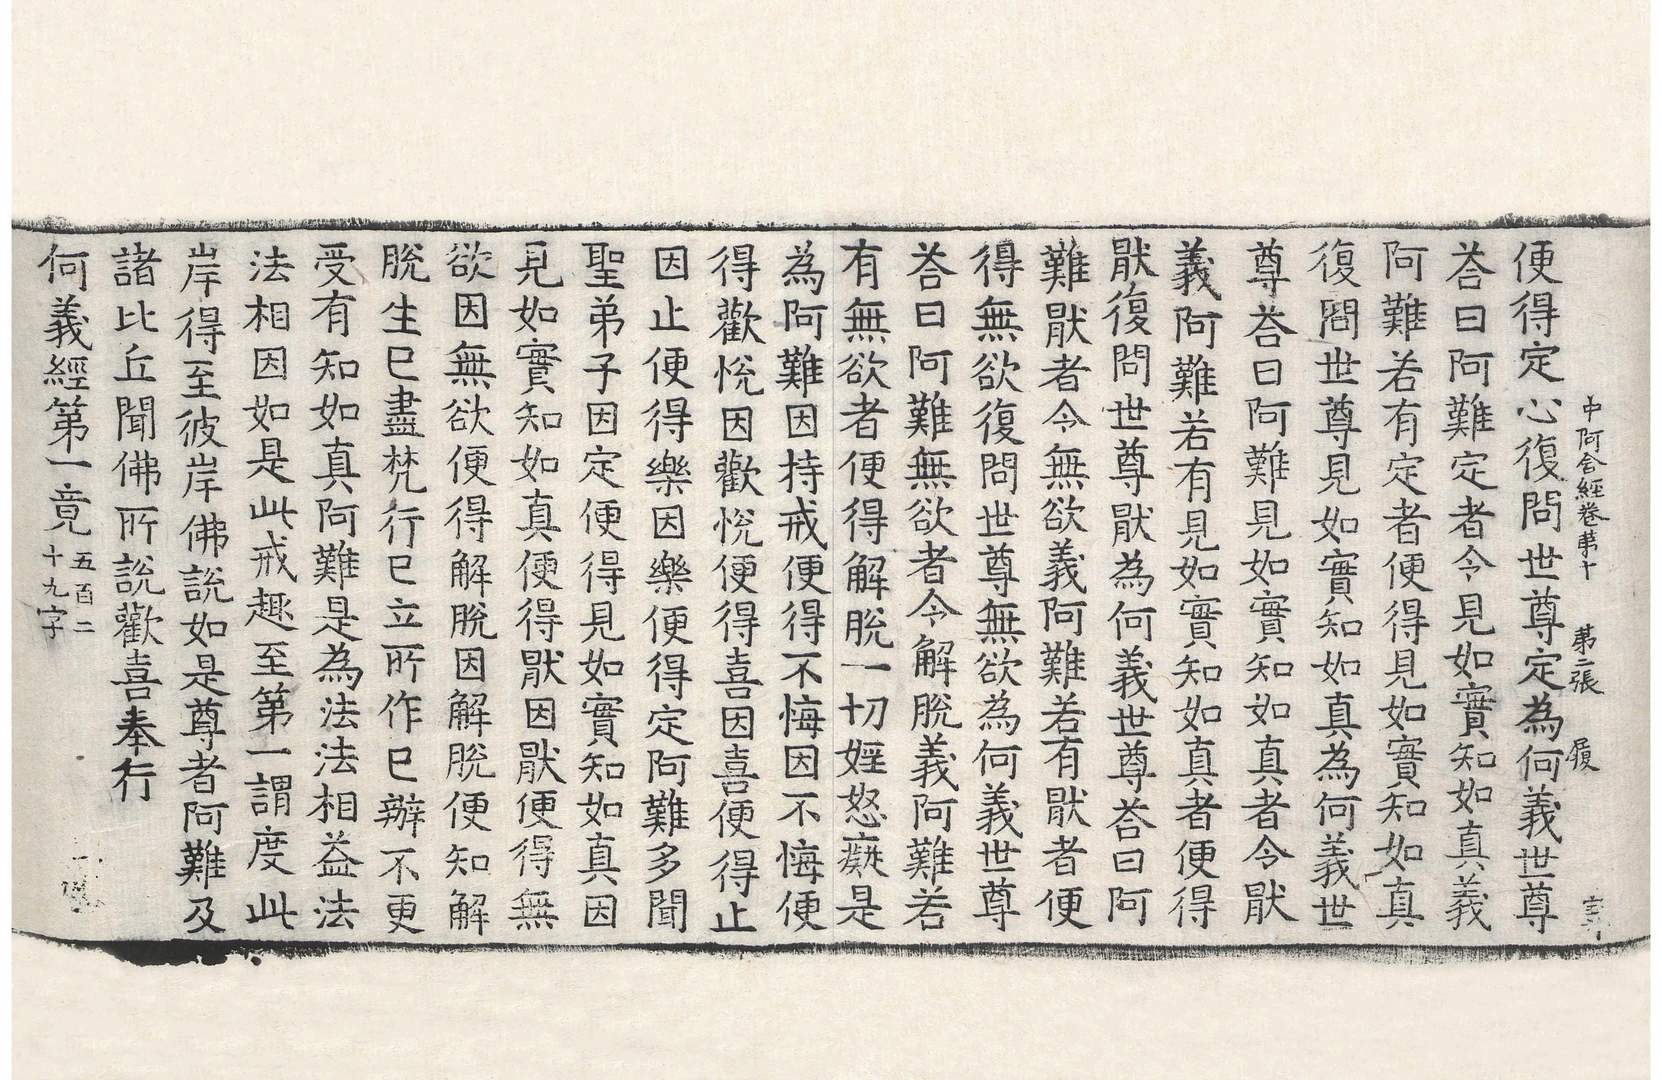 中阿含經卷第十 第二張 履
便得定心復問世尊定為何義世尊
荅曰阿難定者令見如實知如真義
阿難若有定者便得見如實知如真
復問世尊見如實知如真為何義世
尊荅曰阿難見如實知如真者令猒
義阿難若有見如實知如真者便得
猒復問世尊猒為何義世尊荅曰阿
難猒者令無欲義阿難若有猒者便
得無欲復問世尊無欲為何義世尊
荅曰阿難無欲者令解脫義阿難若
有無欲者便得解脫一切婬怒癡是
為阿難因持戒便得不悔因不悔便
得歡悅因歡悅便得喜因喜便得止
因止便得樂因樂便得定阿難多聞
聖弟子因定便得見如實知如真因
見如實知如真便得猒因猒便得無
欲因無欲便得解脫因解脫便知解
脫生已盡梵行已立所作已辦不更
受有知如真阿難是為法法相益法
法相因如是此戒趣至第一謂度此
岸得至彼岸佛說如是尊者阿難及
諸比丘聞佛所說歡喜奉行
何義經第一竟 五百二十九字